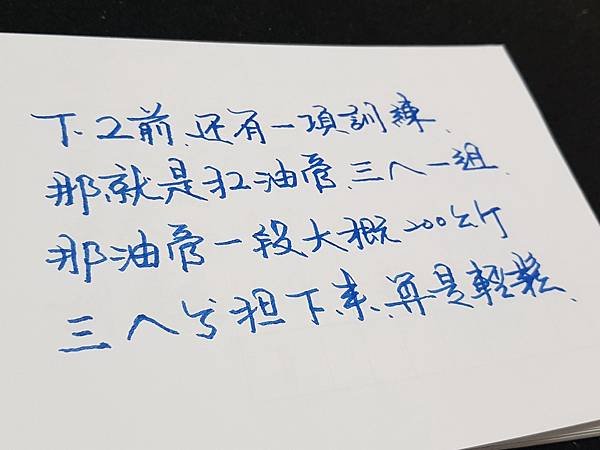 下工前、还有一項訓練、
那就是扛油管、三人一組、
那油管一段大概200公斤
三人分担下来、算是輕鬆、